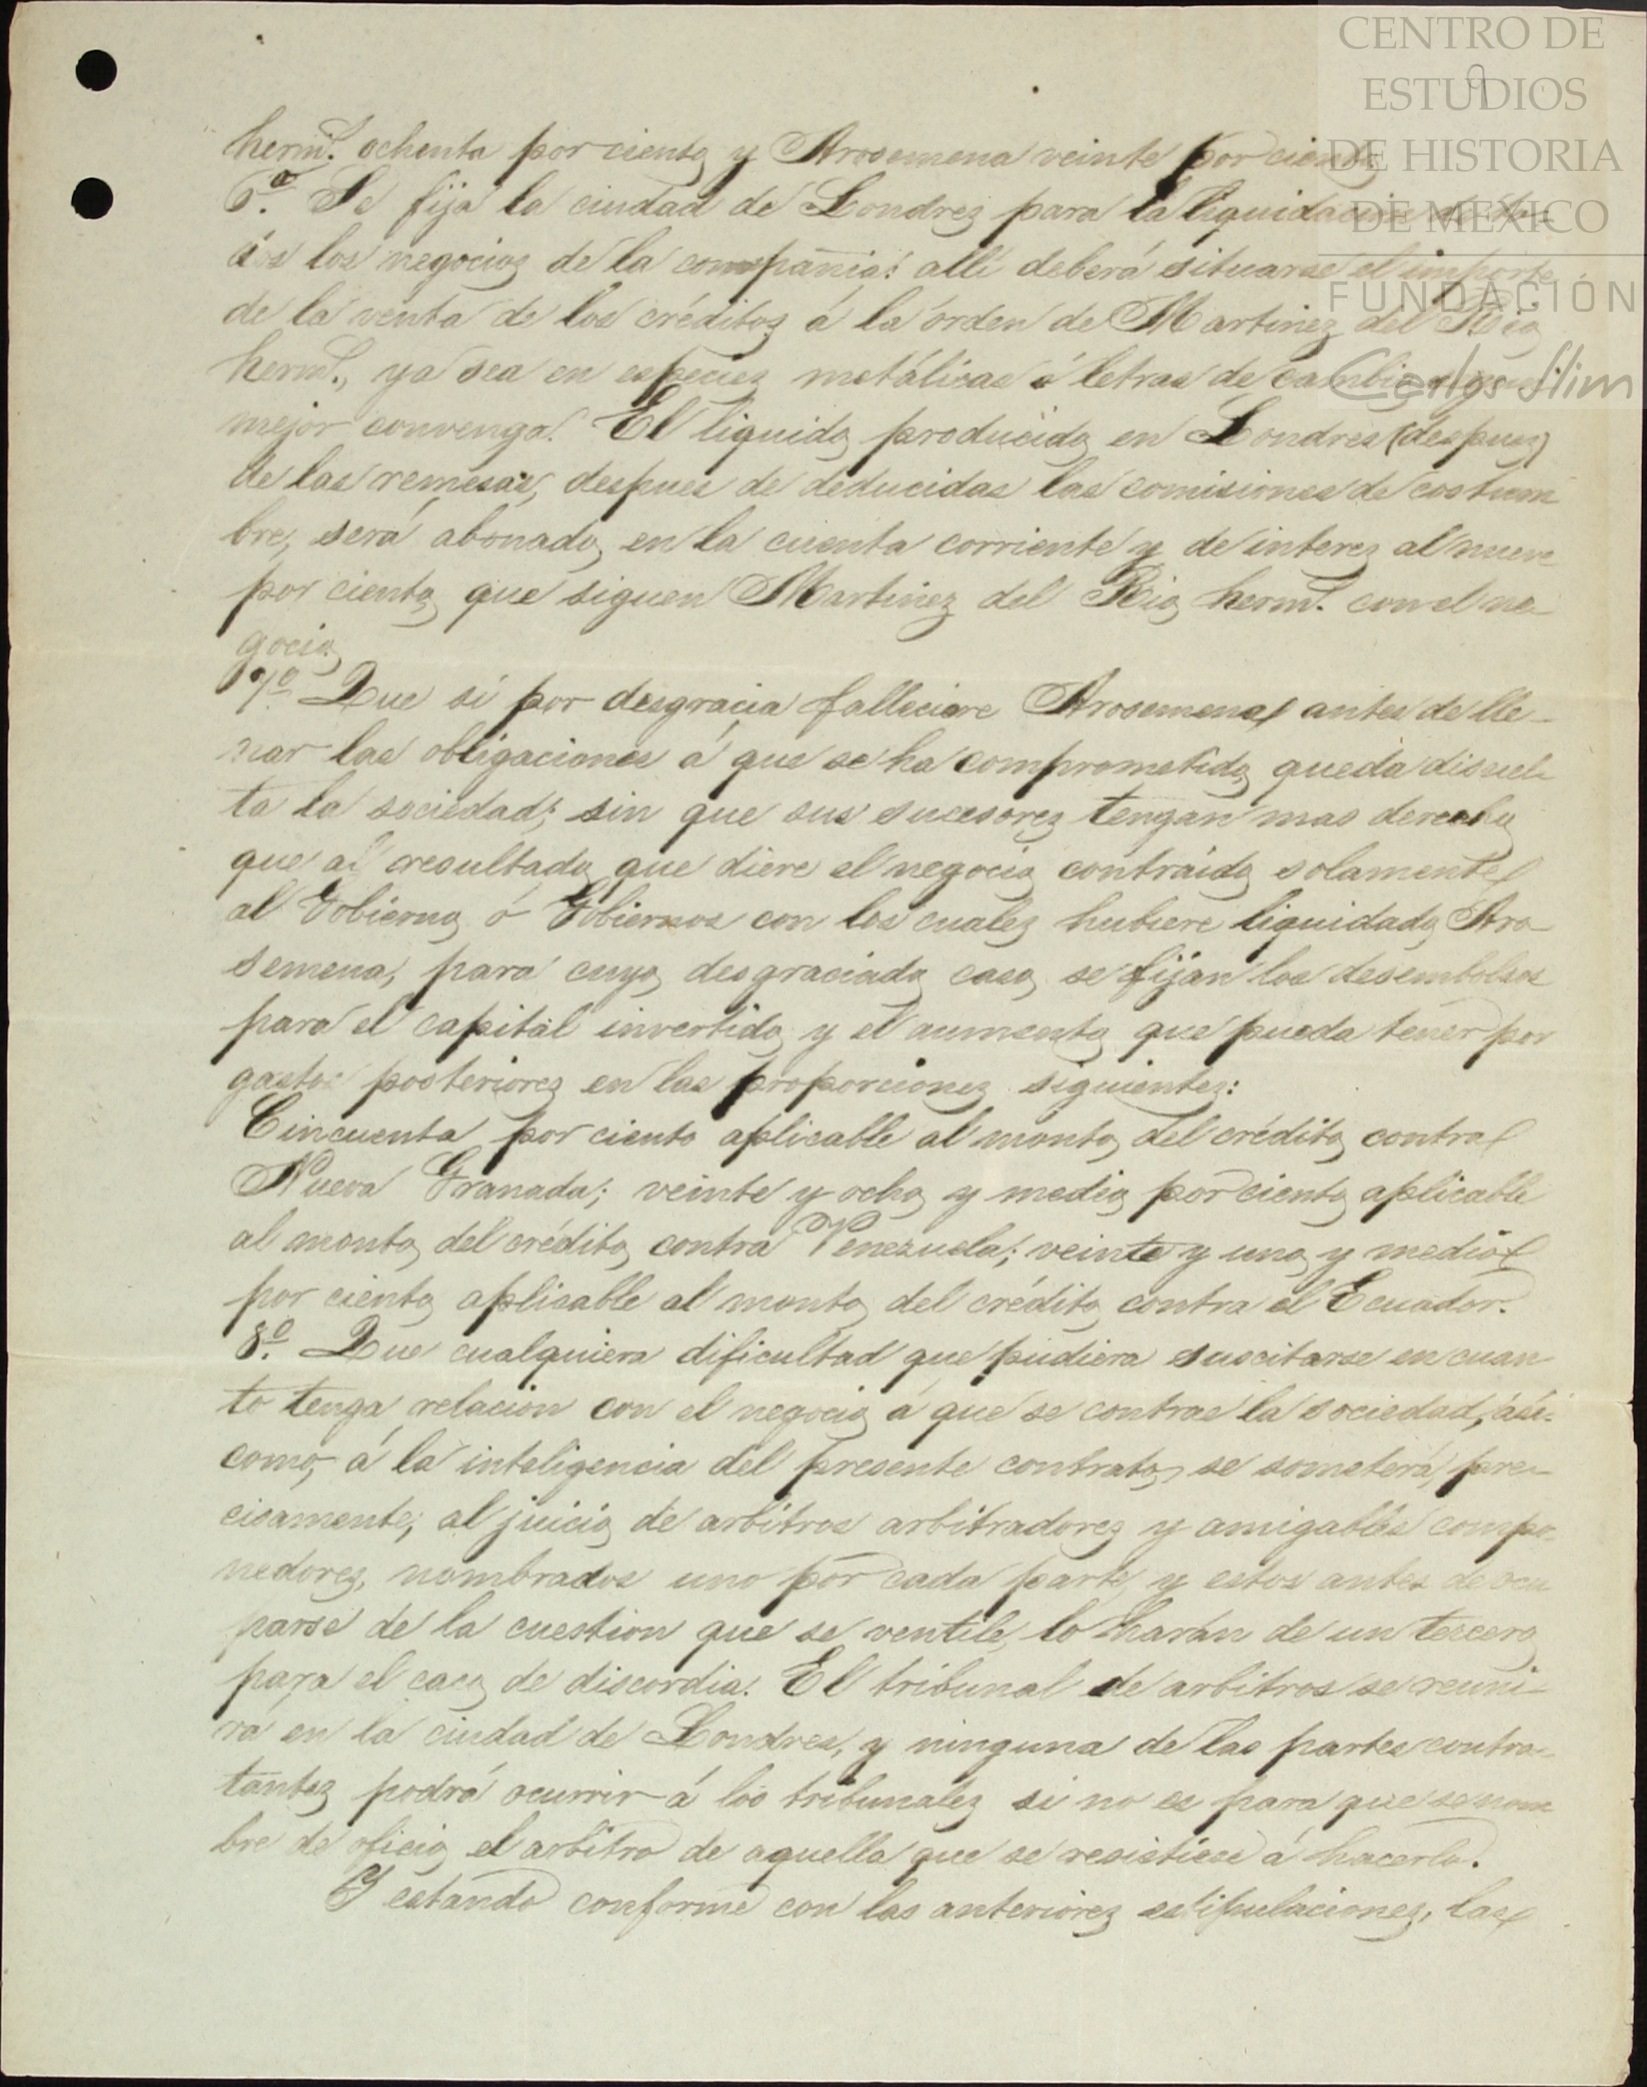 herm.s ochenta por ciento y Arosemena veinte por ciento.
6.a Se fija la ciudad de Londres para la liquidacion de to-
dos los negocios de la compañia: alli deberá situarse el importe
de la venta de los créditos á la órden de Martinez del Rio
herm.s, ya sea en especies metálicas ó letras de cambio
mejor convenga. El liquido producido en Londres (despues)
de las remesas, despues de deducidas las comisiones de costum
bre, será abonado en la cuenta corriente y de interes al nueve
por ciento que siguen Martinez del Rio herm.s con el ne-
gocio.
7.o Que si por desgracia falleciere Arosemena antes de lle-
nar las obligaciones á que se ha comprometido, queda disuel-
ta la sociedad; sin que sus sucesores tengan mas derecho
que al resultado que diere el negocio contraido solamente
al Gobierno ó Gobiernos con los cuales hubiere liquidado Aro-
semena, para cuyo desgraciado caso se fijan los desembolsos
para el capital invertido y el aumento que pueda tener por
gastos posteriores en las proporciones siguientes:
Cincuenta por ciento aplicable al monto del crédito contra
Nueva Granada; veinte y ocho y medio por ciento aplicable
al monto del crédito contra Venezuela; veinte y uno y medio
por ciento aplicable al monto del crédito contra el Ecuador.
8.o Que cualquiera dificultad que pudiera suscitarse en cuan-
to tenga relacion con el negocio á que se contrae la sociedad, asi
como, á la inteligencia del presente contrato, se someterá, pre-
cisamente, al juicio de arbitros arbitradores y amigables compo-
nedores, nombrados uno por cada parte, y estos antes de ocu
parse de la cuestion que se ventile, lo harán de un tercero
para el caso de discordia. El tribunal de arbitros se reuni-
rá en la ciudad de Londres, y ninguna de las partes contra-
tantes podrá ocurrir á los tribunales si no es para que se nom
bre de oficio el arbitro de aquella que se resistiese á hacerlo.
Y estando conforme con las anteriores estipulaciones, las
CENTRO DE
ESTUDIOS
DE HISTORIA
DE MÉXICO
FUNDACIÓN
Carlos Slim